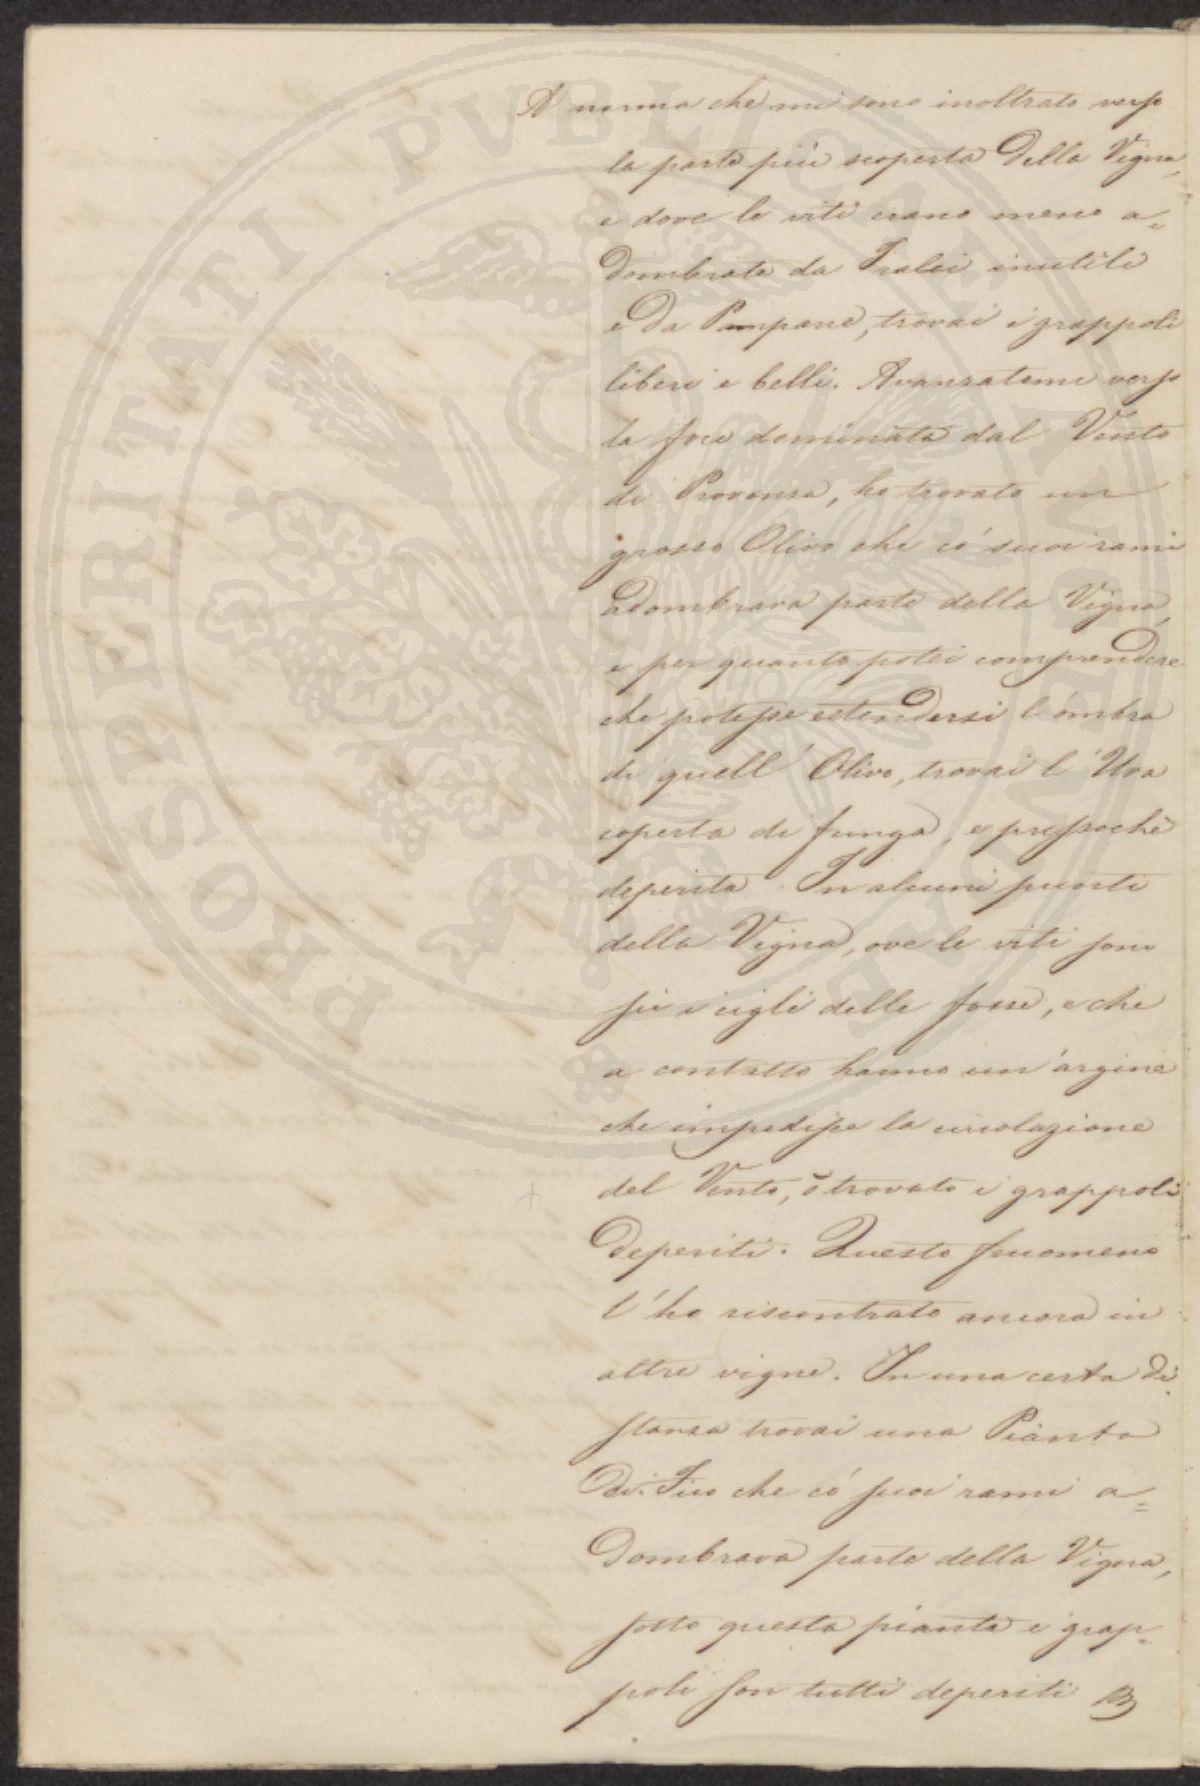 A norma che mi sono inoltrato verso
la parte più scoperta della Vigna,
e dove le viti erano meno a=
dombrate da Tralci inutili
e da Pampane, trovai i grappoli
liberi e belli. Avanzatomi verso
la foce dominata dal Vento
di Provenza, ho trovato un
grosso Olivo che có suoi rami
adombrava parte della Vigna,
e per quanto potei comprendere
che potesse estendersi l'ombra
di quell'Olivo, trovai l'Uva
coperta di funga, e pressochè
deperita. In alcuni punti
della Vigna, ove le viti sono
su i cigli delle fosse, e che
a contatto hanno un'argine
che impedisse la circolazione
del Vento, ò trovato i grappoli
deperiti. Questo fenomeno
l'ho riscontrato ancora in
altre vigne. In una certa di=
stanza trovai una Pianta
di Fico che có suoi rami a=
dombrava parte della Vigna,
sotto questa pianta i grap=
poli son tutti deperiti
PROSPERITATI PUBLICAE AUGENDAE